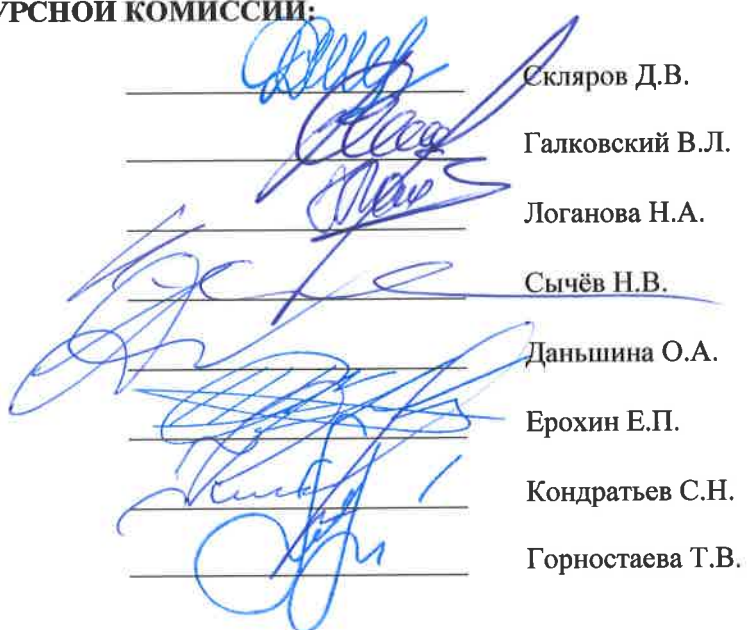 УРСНОЙ КОМИССИИ:
Скляров Д.В.
Галковский В.Л.
Логанова Н.А.
Сычёв Н.В.
Даньшина О.А.
Ерохин Е.П.
Кондратьев С.Н.
Горностаева Т.В.